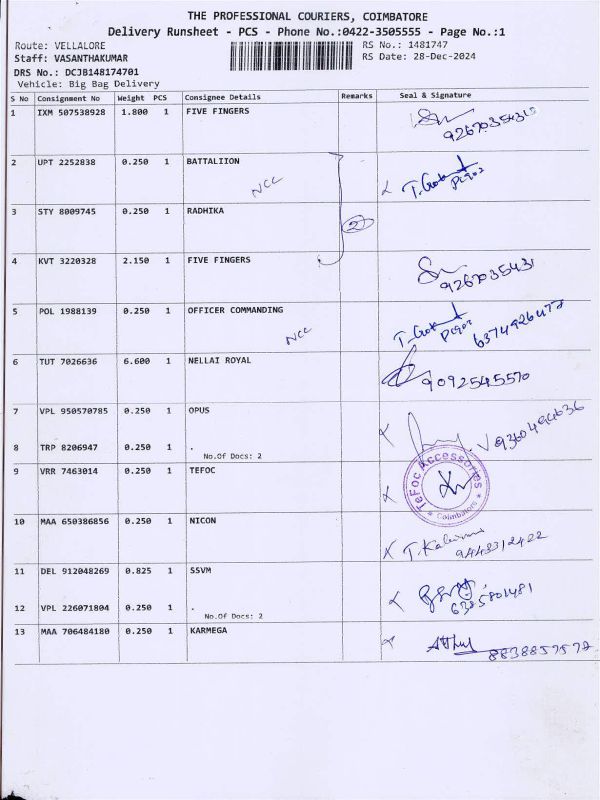 THE PROFESSIONAL COURIERS, COIMBATORE
Delivery Runsheet - PCS - Phone No.:0422-3505555 - Page No.:1
Route: VELLALORE RS No.: 1481747
Staff: VASANTHAKUMAR RS Date: 28-Dec-2024
DRS No.: DCJB148174701
Vehicle: Big Bag Delivery
S No Consignment No Weight PCS Consignee Details Remarks Seal & Signature
1 IXM 507538928 1.800 1 FIVE FINGERS
2 UPT 2252838 0.250 1 BATTALIION
NCC
3 STY 8009745 0.250 1 RADHIKA
2
4 KVT 3220328 2.150 1 FIVE FINGERS
9267035431
5 POL 1988139 0.250 1 OFFICER COMMANDING
NCC
6374926477
6 TUT 7026636 6.600 1 NELLAI ROYAL
9092545570
7 VPL 950570785 0.250 1 OPUS
9360494636
8 TRP 8206947 0.250 1 .
No.Of Docs: 2
9 VRR 7463014 0.250 1 TEFOC
TeFoc Accessories
* Coimbatore *
10 MAA 650386856 0.250 1 NICON
11 DEL 912048269 0.825 1 SSVM
6385801481
12 VPL 226071804 0.250 1 .
No.Of Docs: 2
13 MAA 706484180 0.250 1 KARMEGA
8838857572